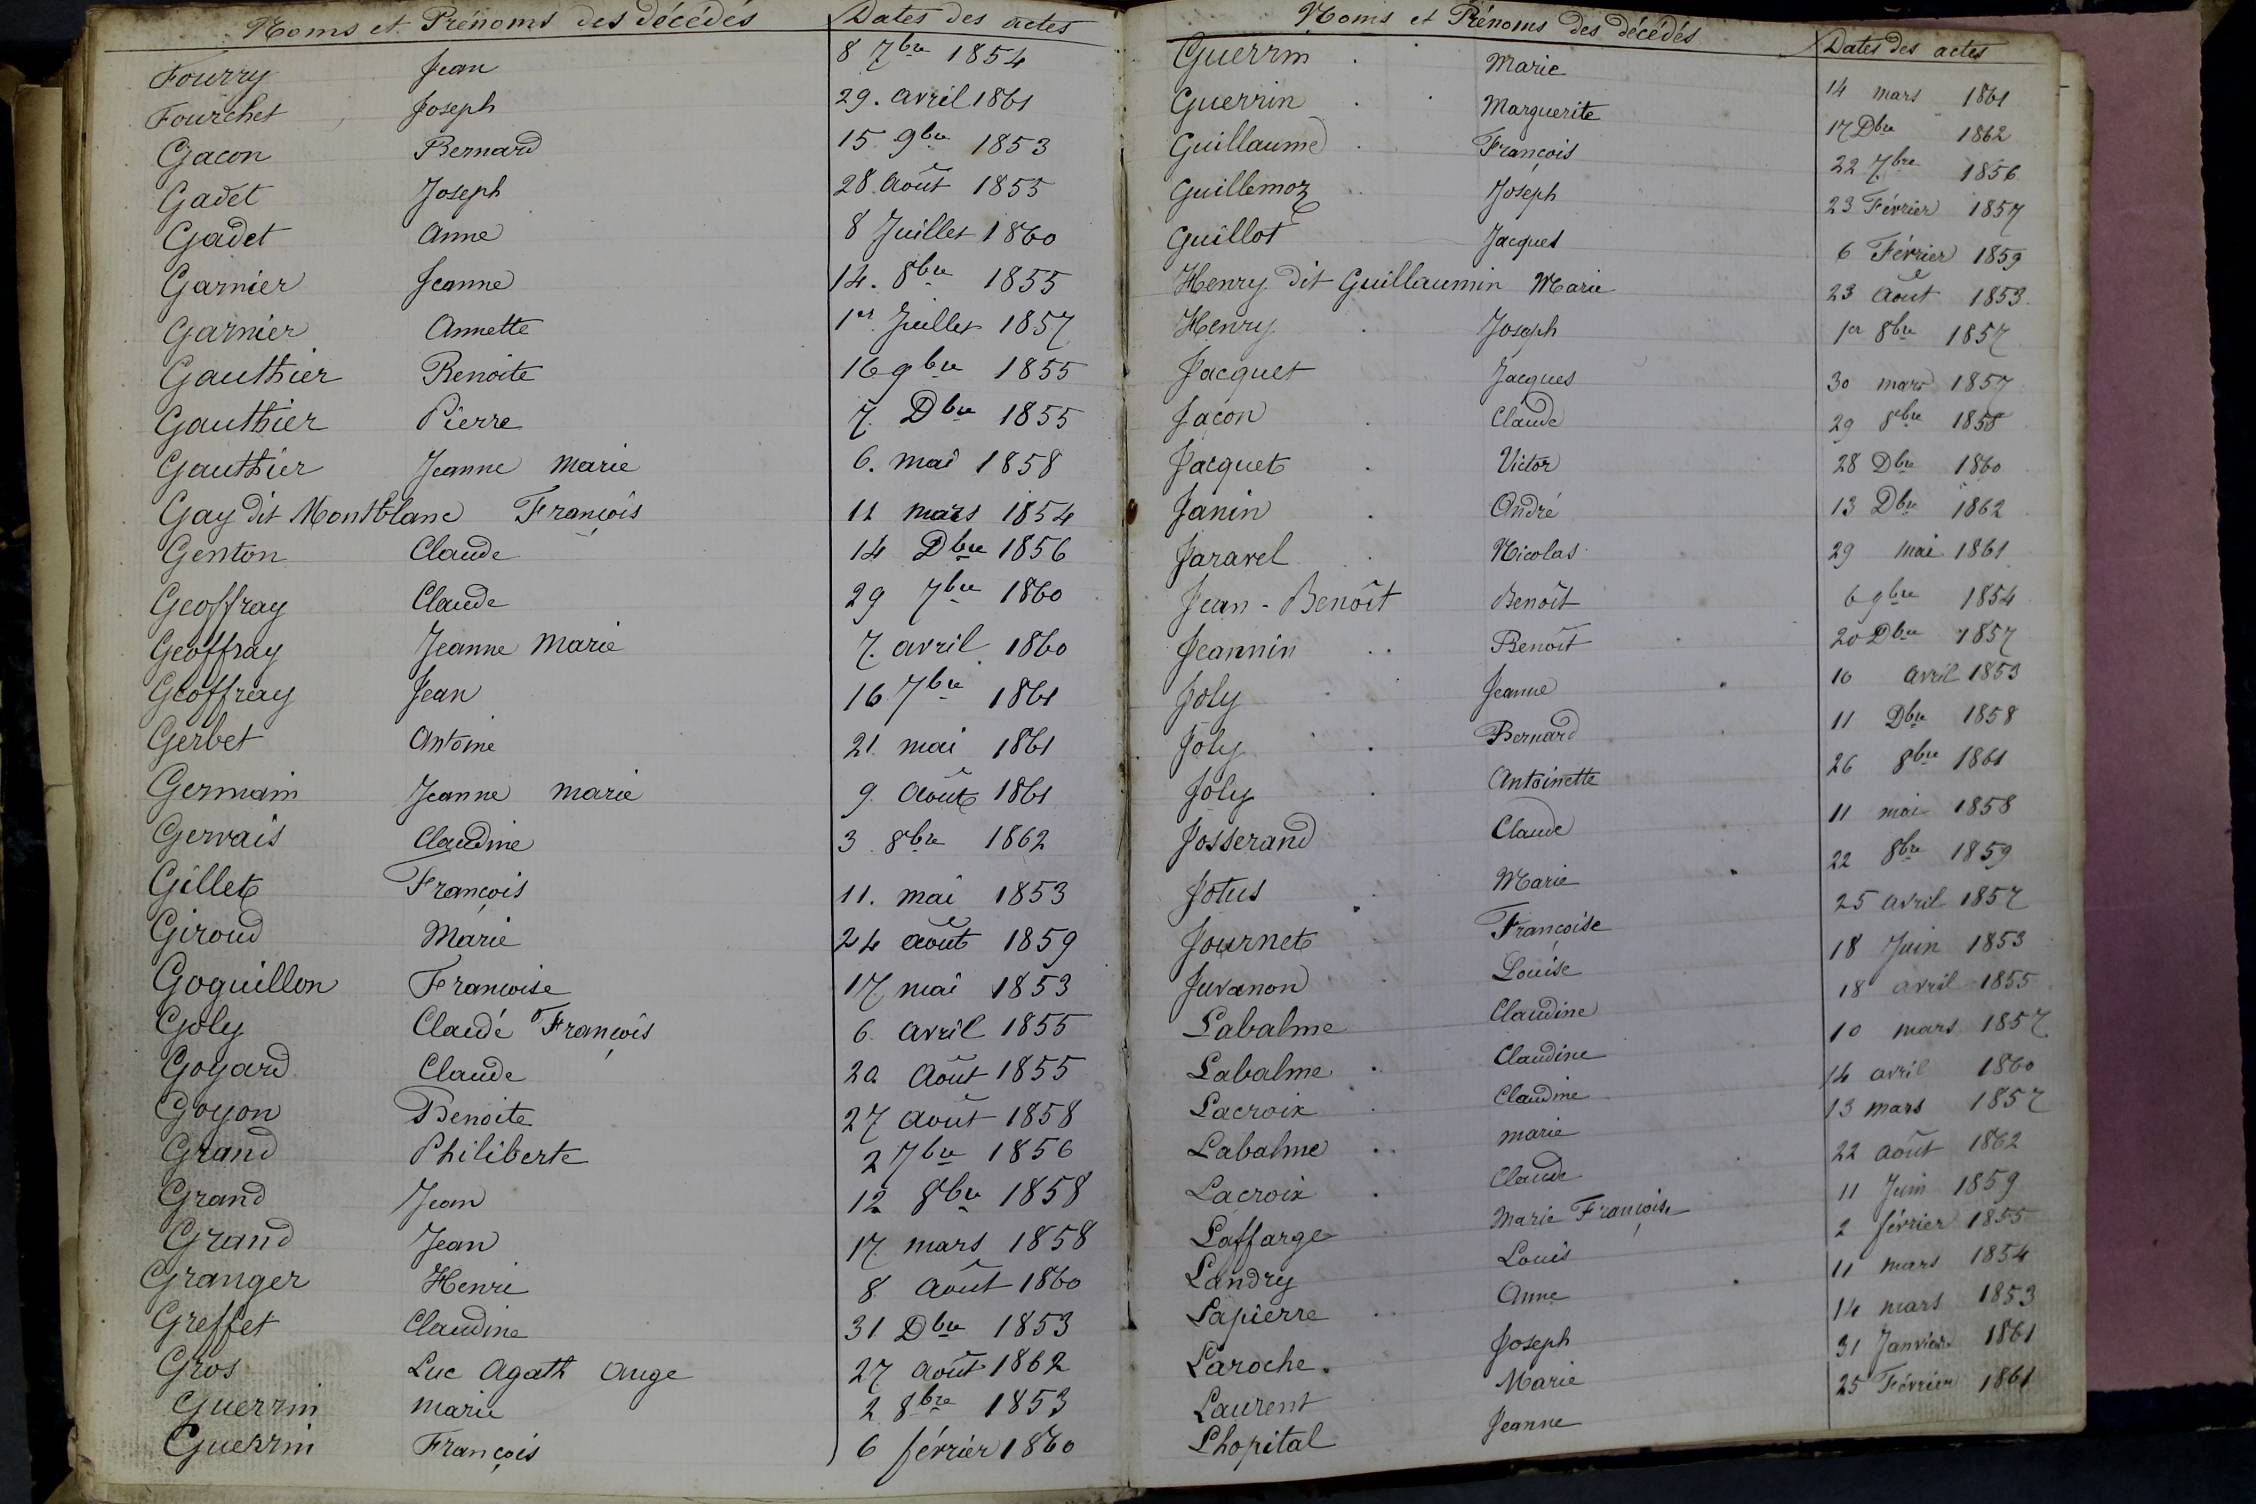 Noms et Prénoms des décédés Dates des actes
Fourry Jean 8 7bre 1854
Fourchet Joseph 29. avril 1861
Gacon Bernard 15 9bre 1853
Gadet Joseph 28. août 1855
Gadet Anne 8 Juillet 1860
Garnier Jeanne 14. 8bre 1855
Garnier Annette 1er Juillet 1857
Gauthier Benoite 16 9bre 1855
Gauthier Pierre 7. Dbre 1855
Gauthier Jeanne marie 6. mai 1858
Gay dit Montblanc François 11 mars 1854
Genton Claude 14 Dbre 1856
Geoffray Claude 29 7bre 1860
Geoffray Jeanne Marie 7. avril 1860
Geoffray Jean 16 7bre 1861
Gerbet Antoine 21. mai 1861
Germain Jeanne marie 9. Août 1861
Gervais Claudine 3. 8bre 1862
Gillet François 11. mai 1853
Giroud Marie 24 août 1859
Goquillon Françoise 17 mai 1853
Goly Claude François 6. avril 1855
Goyard Claude 20 Août 1855
Goyon Benoite 27 août 1858
Grand Philiberte 2 7bre 1856
Grand Jean 12 8bre 1858
Grand Jean 17 mars 1858
Granger Henri 8 Août 1860
Greffet Claudine 31 Dbre 1853
Gros Luc Agath Ange 27 août 1862
Guerrin marie 2 8bre 1853
Guerrin François 6 février 1860
Noms et Prénoms des décédés Dates des actes
Guerrin Marie 14 mars 1861
Guerrin Marguerite 17 Dbre 1862
Guillaume François 22 7bre 1856
Guillemoz Joseph 23 Février 1857
Guillot Jacques 6 Février 1859
Henry dit Guillaumin Marie 23 Août 1853
Henry Joseph 1er 8bre 1857
Jacquet Jacques 30 mars 1857
Jacon Claude 29 8bre 1858
Jacquet Victor 28 Dbre 1860
Janin André 13 Dbre 1862
Jaravel Nicolas 29 mai 1861
Jean-Benoît Benoît 6 9bre 1854
Jeannin Benoît 20 Dbre 1857
Joly Jeanne 10 avril 1853
Joly Bernard 11 Dbre 1858
Joly Antoinette 26 8bre 1861
Josserand Claude 11 mai 1858
Jotus Marie 22 8bre 1859
Journet Françoise 25 avril 1857
Juvanon Louise 18 Juin 1853
Labalme Claudine 18 avril 1855
Labalme Claudine 10 mars 1857
Lacroix Claudine 14 avril 1860
Labalme marie 13 mars 1857
Lacroix Claude 22 août 1862
Laffarge Marie Françoise 11 Juin 1859
Landry Louis 2 février 1855
Lapierre Anne 11 mars 1854
Laroche Joseph 14 mars 1853
Laurent Marie 31 Janvier 1861
Lhopital Jeanne 25 Février 1861